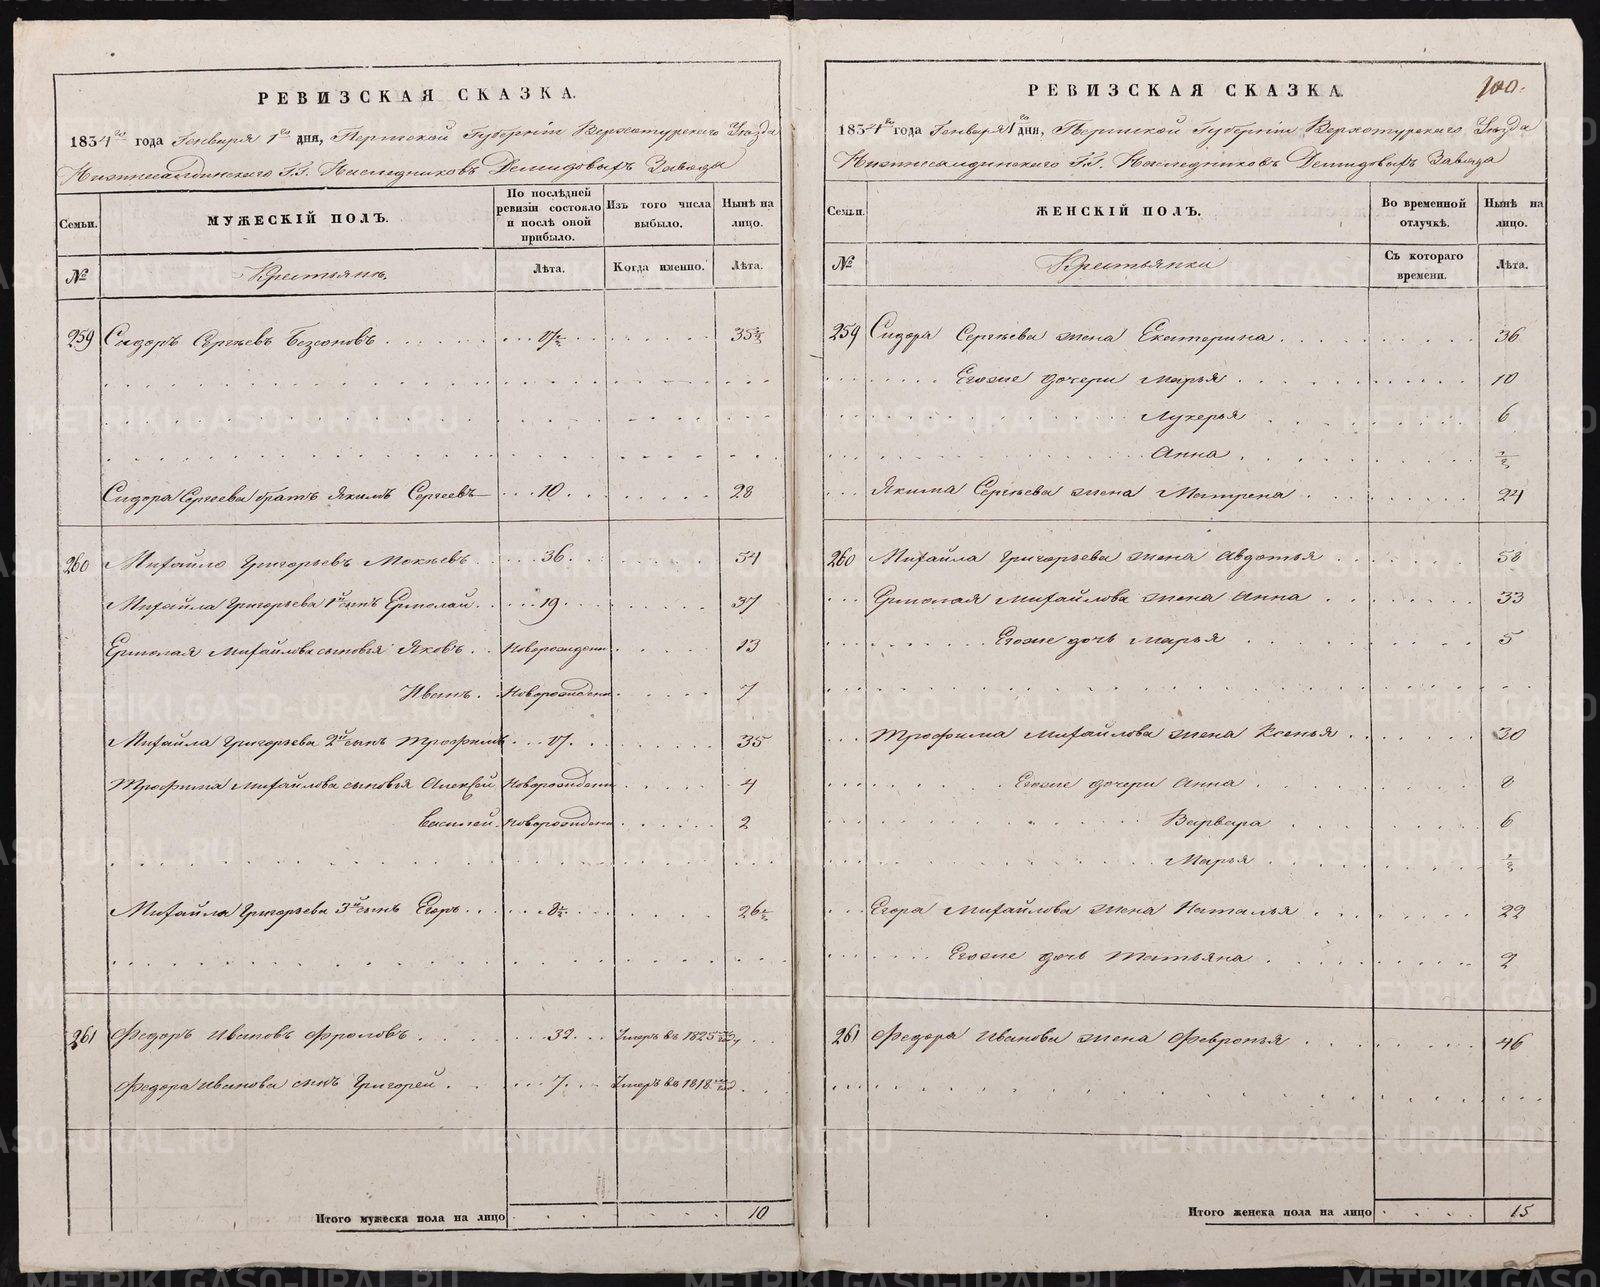 РЕВИЗСКАЯ СКАЗКА.
1834го года Генваря 1го дня, Пермской Губернiи Верхотурскаго Уѣзда
Нижнесалдинскаго Г.Г. Наслѣдниковъ Демидовыхъ Завода
Семьи.
МУЖЕСКIЙ ПОЛЪ.
По послѣдней ревизiи состояло и послѣ оной прибыло.
Изъ того числа выбыло.
Нынѣ на лицо.
№
Крестьянъ.
Лѣта.
Когда именно.
Лѣта.
259 Сидоръ Сергѣевъ 17½ 35½
Сидора Сергеева братъ Якимъ Сергеевъ 10 28
260 Михайло Григорьевъ Мокѣевъ 36 54
Михайла Григорьева 1й сынъ Ермолай 19 37
Ермолая Михайлова сыновья Яковъ Новорожденъ 13
Иванъ Новорожденъ 7
Михайла Григорьева 2й сынъ Трофимъ 17 35
Трофима Михайлова сыновья Алексѣй Новорожденъ 4
Василей Новорожденъ 2
Михайла Григорьева 3й сынъ Егоръ 8½ 26½
261 Федоръ Ивановъ Фроловъ 32 Умеръ въ 1825
Федора Иванова сынъ Григорей 7 Умеръ въ 1818
Итого мужеска пола на лицо 10
РЕВИЗСКАЯ СКАЗКА.
100.
1834го года Генваря 1го дня, Пермской Губернiи Верхотурскаго Уѣзда
Нижнесалдинскаго Г.Г. Наслѣдниковъ Демидовыхъ Завода
Семьи.
ЖЕНСКIЙ ПОЛЪ.
Во временной отлучкѣ.
Нынѣ на лицо.
№
Крестьянки
Съ котораго времени.
Лѣта.
259 Сидора Сергѣева жена Екатерина 36
Егоже дочери Марья 10
Лукерья 6
Анна ½
Якима Сергѣева жена Матрена 24
260 Михайла Григорьева жена Авдотья 58
Ермолая Михайлова жена Анна 33
Егоже дочь Марья 5
Трофима Михайлова жена Ксенья 30
Егоже дочери Анна 8
Варвара 6
Марья ½
Егора Михайлова жена Наталья 22
Егоже дочь Татьяна 2
261 Федора Иванова жена Февронья 46
Итого женска пола на лицо 15
METRIKI.GASO-URAL.RU